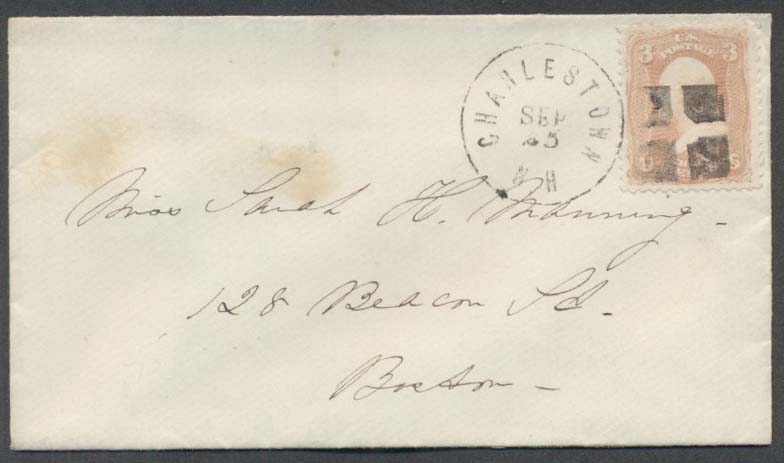 CHARLESTOWN
SEP
25
N.H
3 U.S. 3
POSTAGE
U S
Miss Sarah H. Manning
128 Beacon St.
Boston